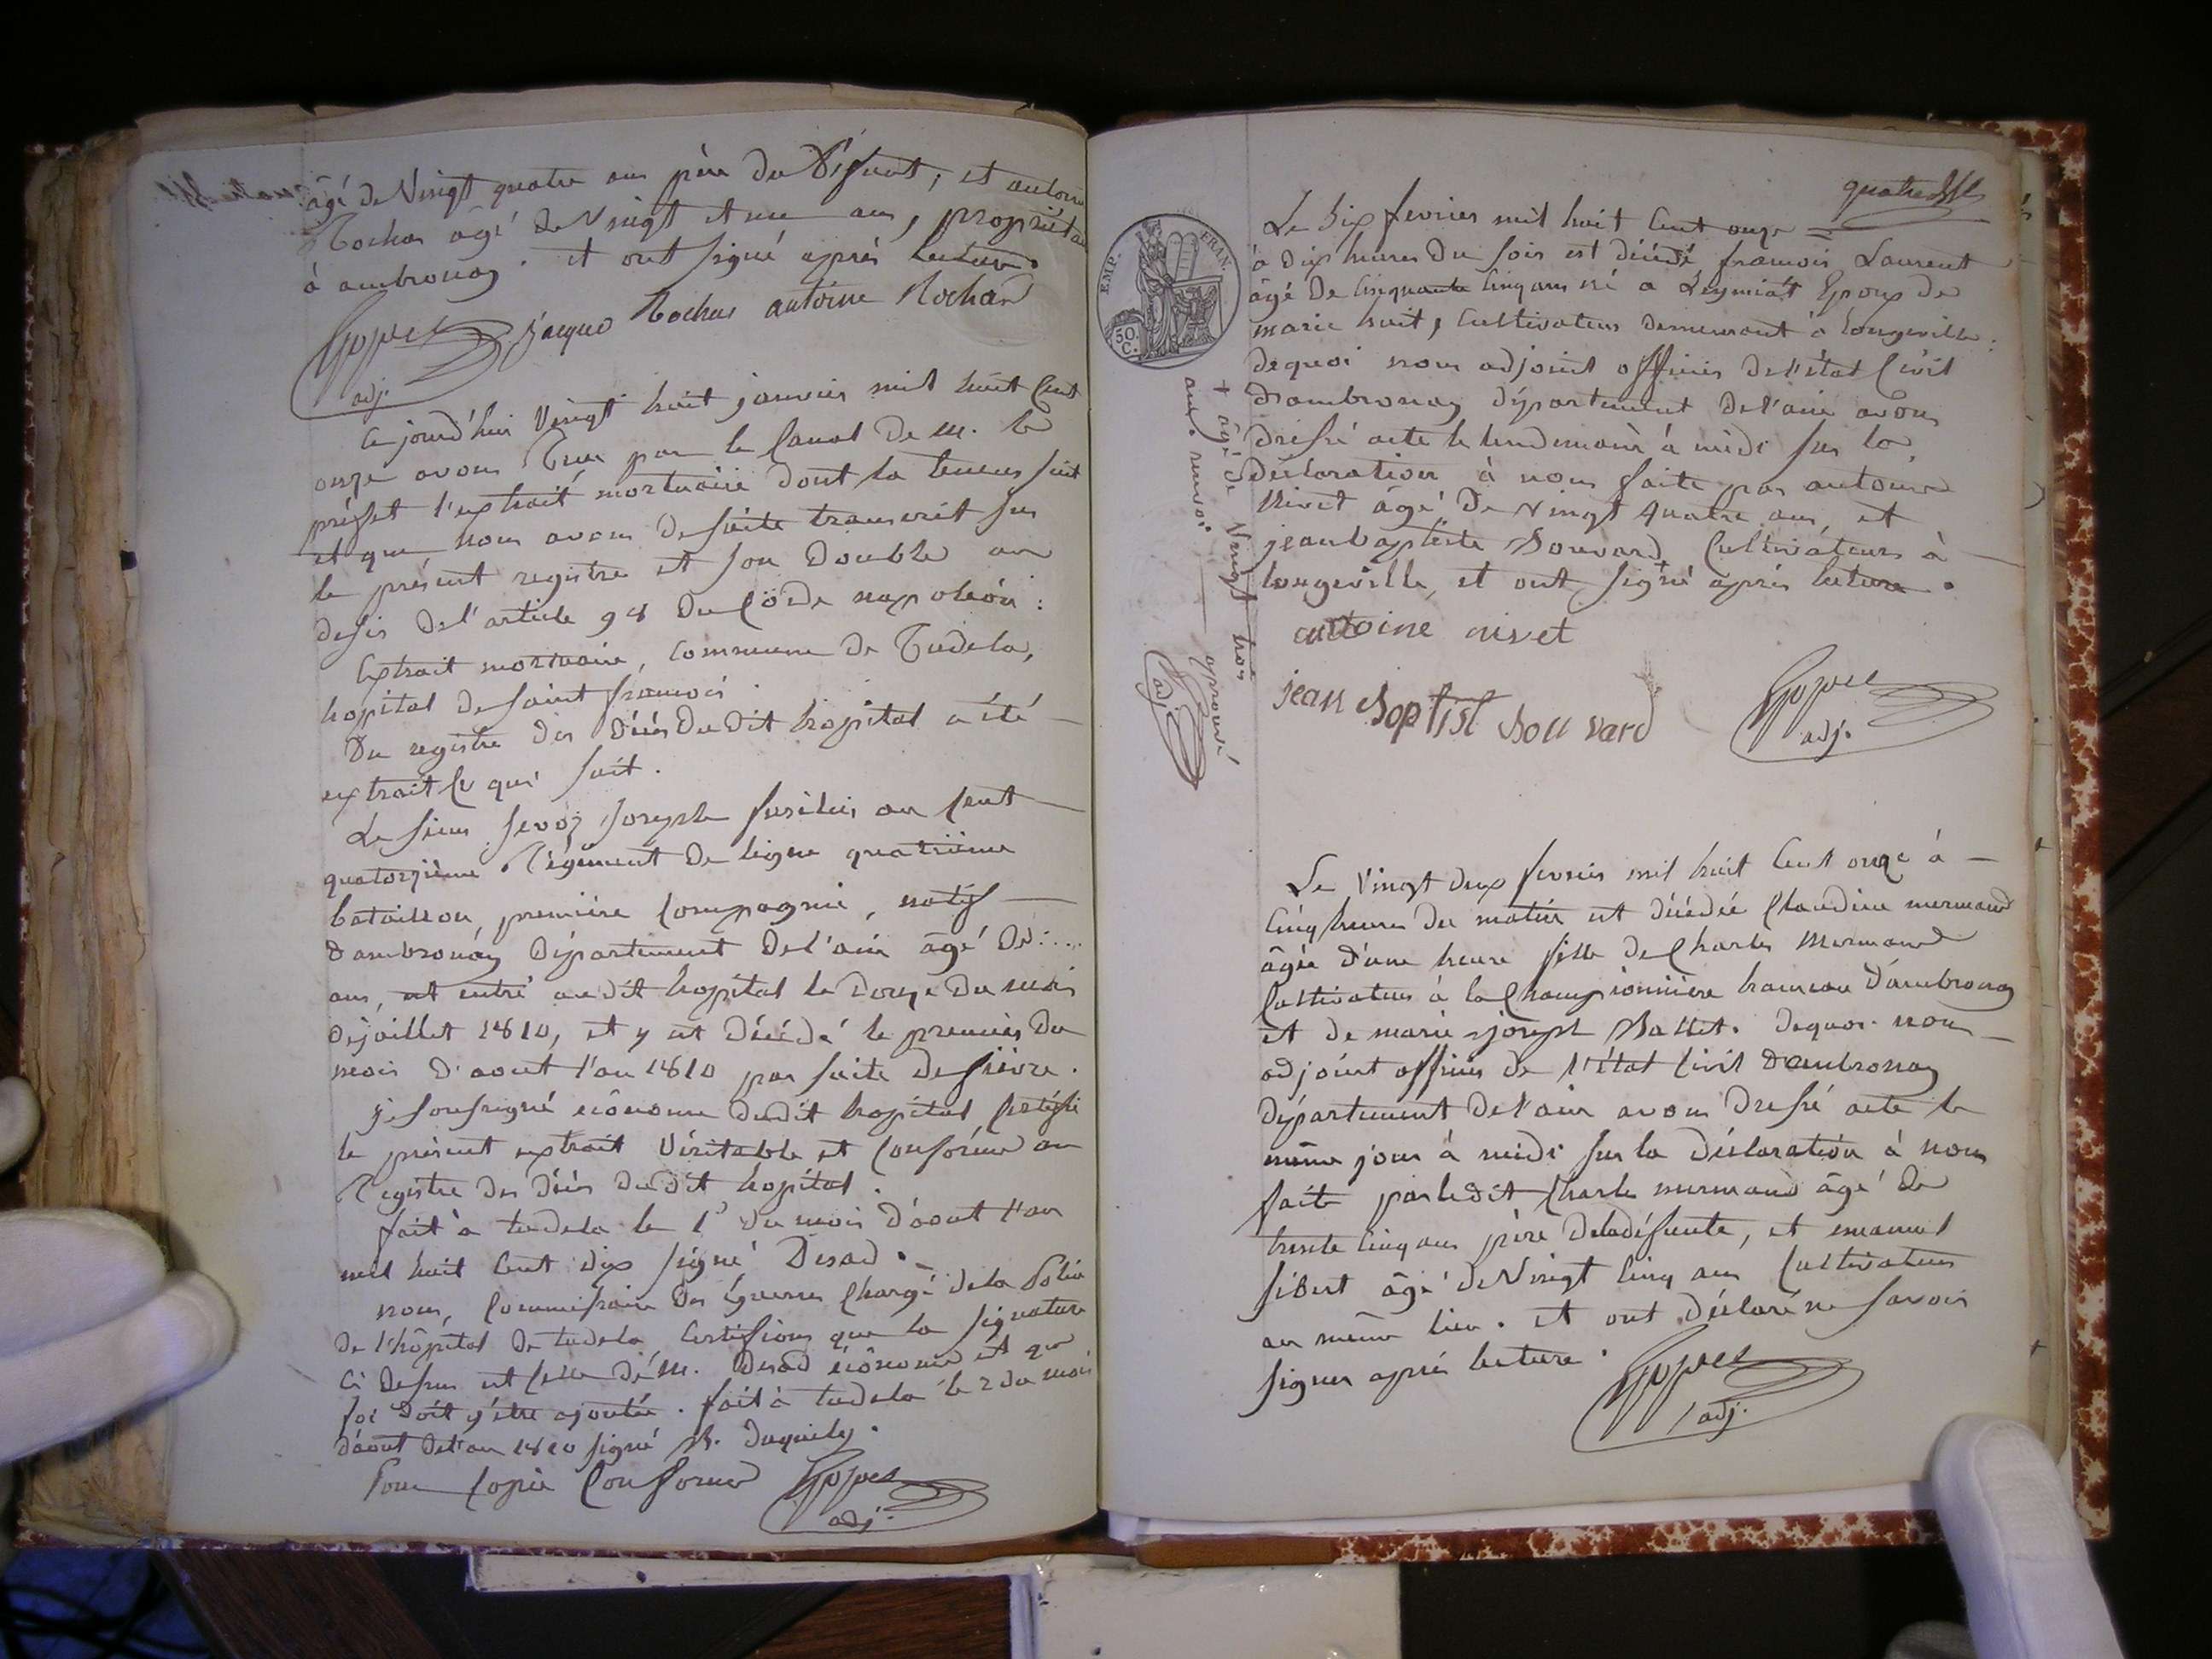 âgé de Vingt quatre ans père du Défunt, et antoine
Rochas âgé de Vingt et un ans, propriétai
à ambronay. et ont signé après lecture.
jacque Rochas antoine Rochas
adj.
Ce jourd'hui Vingt huit janvier mil huit Cent
onze avons Reçu par le Canal de M. le
préfet l'extrait mortuaire dont la teneur suit
et que nous avons desuite transcrit sur
le présent registre et son double au
desir de l'article 98 du Code napoléon :
Extrait mortuaire, commune de Tudela,
hopital de saint françois.
Du registre des décès dudit hopital a été
extrait Ce qui suit.
Le sieur joseph fusilier au cent
quatorzième Régiment de ligne quatrième
bataillon, première Compagnie, natif
d'ambronay département de l'ain âgé de ....
ans, est entré audit hopital le douze du mois
de juillet 1810, et y est décédé le premier du
mois d'aout l'an 1810 par suite de fièvre.
je soussigné économe dudit hopital Certifie
le présent extrait Véritable et Conforme au
Registre des décès dudit hopital.
fait à tudela le 1er du mois d'aout l'an
mil huit Cent dix signé Desad.
nous, Commissaire des guerres Chargé de la Police
de l'hôpital de tudela, Certifions que la signature
Ci dessus est Celle de M. Desad économe et que
foi doit y être ajoutée. fait à tudela le 2 du mois
d'aout de l'an 1810 signé
Pour Copie Conforme
adj.
quatre
Le dix fevrier mil huit Cent onze =
à dix heures du soir est décédé françois Laurent
âgé de Cinquante Cinq ans né a Leymiat Epoux de
marie huit, Cultivateur demeurant à longeville :
dequoi nous adjoint officier de l'état Civil
d'ambronay département de l'ain avons
dressé acte le lendemain à midi sur la
déclaration à nous faite par antoine
Nivet âgé de Vingt quatre ans, et
jeanbaptiste Bouvard + Cultivateurs à
longeville, et ont signé après lecture.
+ âgé de Vingt trois
ans. renvoi approuvé
adj.
EMP. FRAN.
50 C.
antoine nivet
jean Baptist Bouvard
adj.
Le Vingt deux fevrier mil huit Cent onze à
Cinq heures du matin est décédée Claudine mermand
âgée d'une heure fille de Charles Mermand
Cultivateur à la Championnière hameau d'ambronay
et de marie joseph Ballet. dequoi nous
adjoint officier de l'état Civil d'ambronay
département de l'ain avons dressé acte le
même jour à midi sur la déclaration à nous
faite par ledit Charles mermand âgé de
trente Cinq ans père de la défunte, et emanuel
sibert âgé de Vingt Cinq ans Cultivateur
au même lieu. et ont déclaré ne savoir
signer après lecture.
adj.